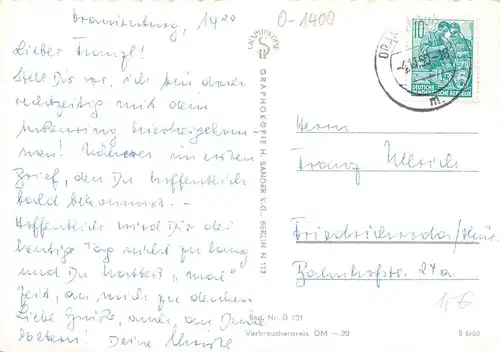 Brandenburg, 14²⁰
O-1400
Lieber Franzl!
Stell Dir vor, ich bin doch
rechtzeitig mit dem
hierhergekom-
men! Näheres im ersten
Brief, den Du hoffentlich
bald bekommst. -
Hoffentlich wird Dir der
heutige Tag nicht zu lang
und Du hattest "mal"
Zeit, an mich zu denken
Liebe Grüße, auch an Deine
Eltern! Deine
GRAPHOKOPIE
GRAPHOKOPIE H. SANDER K.G., BERLIN N 113
10
DEUTSCHE
DEMOKRATISCHE REPUBLIK
m
Herrn
Franz Ulrich
Friedrichroda/Thür.
Bahnhofstr. 24a
Best. Nr. D 731
Verbraucherpreis DM -.20
B 6/60